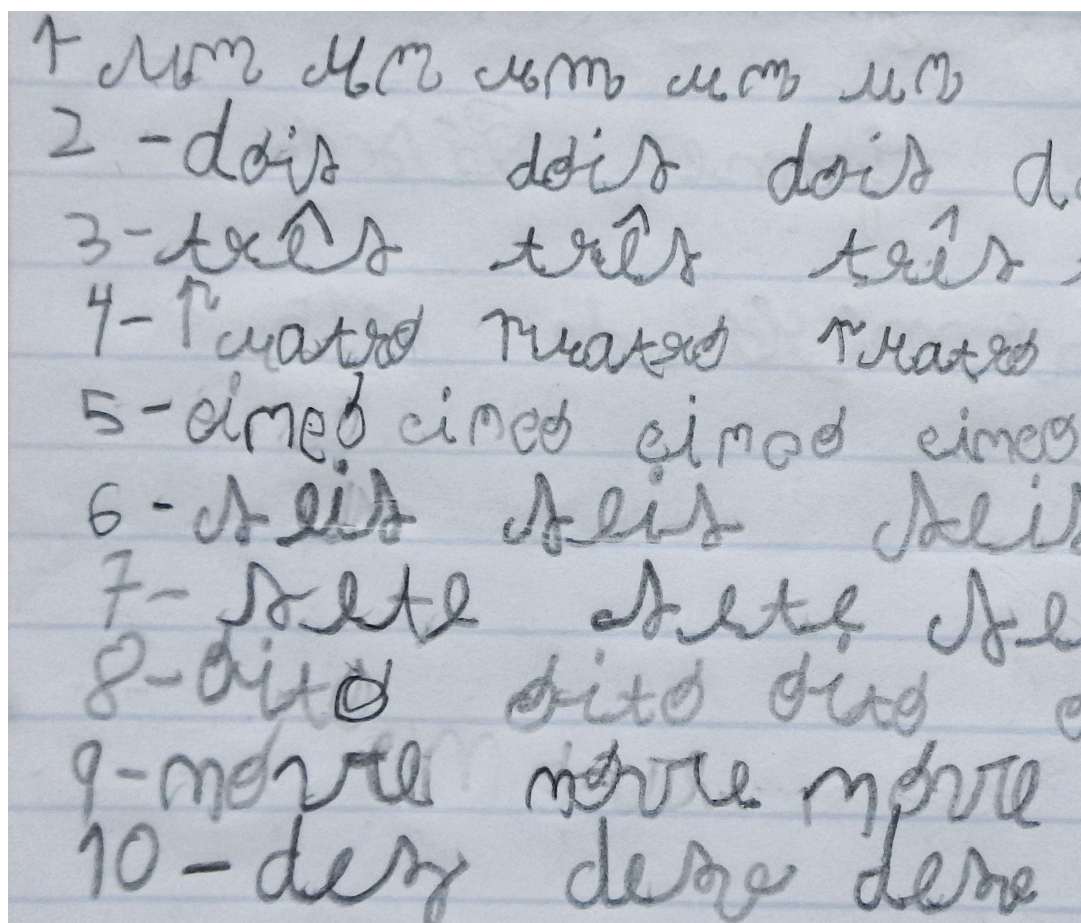 1 um um um um um
2 - dois dois dois d
3 - três três três
4 - quatro quatro quatro
5 - cinco cinco cinco cinco
6 - seis seis seis
7 - sete sete se
8 - oito oito oito o
9 - nove nove nove
10 - dez dez dez